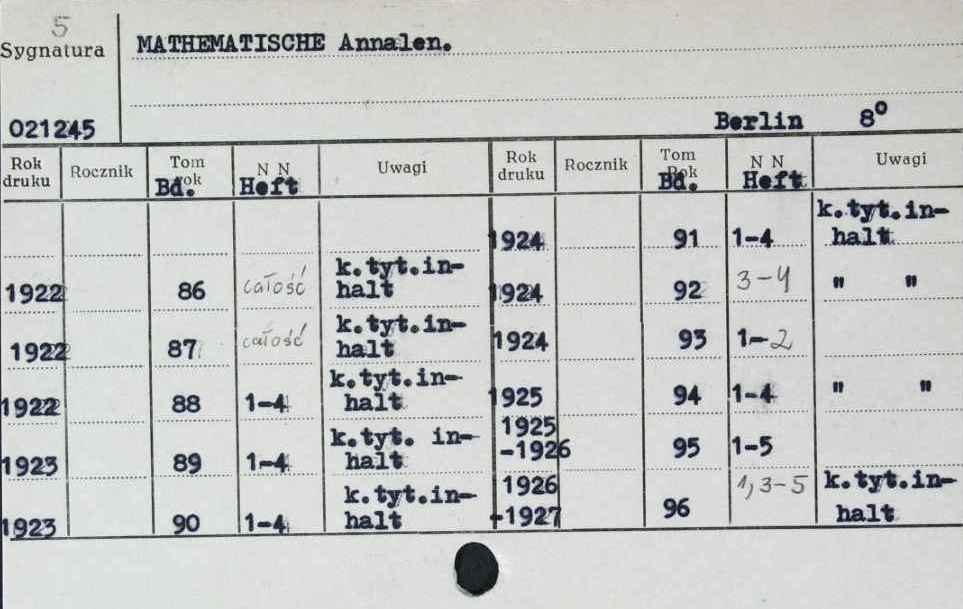 5
Sygnatura
MATHEMATISCHE Annalen.
021245
Berlin 8°
Rok druku Rocznik Tom rok Bd. N N Heft Uwagi Rok druku Rocznik Tom Rok Bd. N N Heft Uwagi
1924 91 1-4 k.tyt.in-
halt
1922 86 całość k.tyt.in-
halt
1924 92 3-4 " "
1922 87 całość k.tyt.in-
halt
1924 93 1-2
1922 88 1-4 k.tyt.in-
halt
1925 94 1-4 " "
1923 89 1-4 k.tyt. in-
halt
1925
-1926 95 1-5
1923 90 1-4 k.tyt.in-
halt
1926
-1927 96 1,3-5 k.tyt.in-
halt